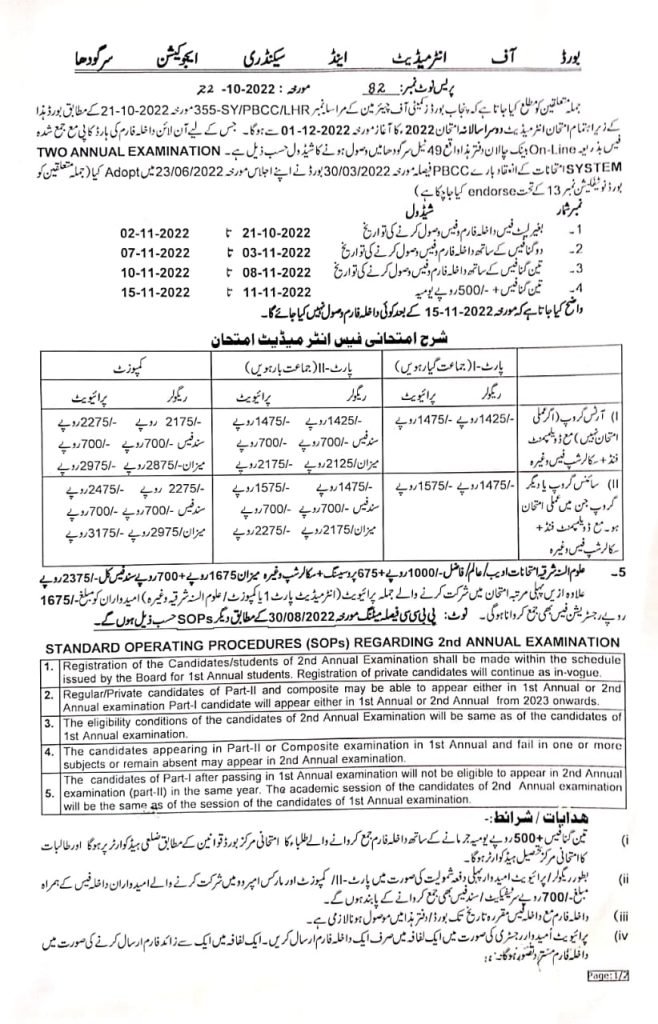 بورڈ آف انٹرمیڈیٹ اینڈ سیکنڈری ایجوکیشن سرگودھا
پریس نوٹ نمبر: 82 مورخہ: 22-10-2022
جملہ متعلقین کو مطلع کیا جاتا ہے کہ پنجاب بورڈز کمیٹی آف چیئرمین کے مراسلہ نمبر 355-SY/PBCC/LHR مورخہ 21-10-2022 کے مطابق بورڈ ہذا
کے زیر اہتمام امتحان انٹرمیڈیٹ دوسرا سالانہ امتحان 2022ء کا آغاز مورخہ 01-12-2022 سے ہوگا۔ جس کے لیے آن لائن داخلہ فارم کی ہارڈ کاپی مع جمع شدہ
فیس بذریعہ On-Line بینک چالان دفتر ہذا واقع 49 ٹیل سرگودھا میں وصول ہونے کا شیڈول حسب ذیل ہے۔ TWO ANNUAL EXAMINATION
SYSTEM امتحانات کے انعقاد بارے PBCC فیصلہ مورخہ 30/03/2022 بورڈ نے اپنے اجلاس مورخہ 23/06/2022 میں Adopt کیا (جملہ متعلقین کو
بورڈ نوٹیفکیشن نمبر 13 کے تحت endorse کیا جا چکا ہے)
نمبر شمار شیڈول
1۔ بغیر لیٹ فیس داخلہ فارم و فیس وصول کرنے کی تواریخ 21-10-2022 تا 02-11-2022
2۔ دو گنا فیس کے ساتھ داخلہ فارم و فیس وصول کرنے کی تواریخ 03-11-2022 تا 07-11-2022
3۔ تین گنا فیس کے ساتھ داخلہ فارم و فیس وصول کرنے کی تواریخ 08-11-2022 تا 10-11-2022
4۔ تین گنا فیس + -/500 روپے یومیہ 11-11-2022 تا 15-11-2022
واضح کیا جاتا ہے کہ مورخہ 15-11-2022 کے بعد کوئی داخلہ فارم وصول نہیں کیا جائے گا۔
شرح امتحانی فیس انٹر میڈیٹ امتحان
پارٹ-I (جماعت گیارہویں) پارٹ-II (جماعت بارہویں) کمپوزٹ
ریگولر پرائیویٹ ریگولر پرائیویٹ ریگولر پرائیویٹ
(I) آرٹس گروپ (اگر عملی -/1425 روپے -/1475 روپے -/1425 روپے -/1475 روپے -/2175 روپے -/2275 روپے
امتحان نہیں) مع ڈویلپمنٹ سند فیس -/700 روپے -/700 روپے سند فیس -/700 روپے -/700 روپے
فنڈ + سکالرشپ فیس وغیرہ میزان/-2125 روپے -/2175 روپے میزان/-2875 روپے -/2975 روپے
(II) سائنس گروپ یا دیگر -/1475 روپے -/1575 روپے -/1475 روپے -/1575 روپے -/2275 روپے -/2475 روپے
گروپ جن میں عملی امتحان سند فیس -/700 روپے -/700 روپے سند فیس -/700 روپے -/700 روپے
ہو۔ مع ڈویلپمنٹ فنڈ + میزان/-2175 روپے -/2275 روپے میزان/-2975 روپے -/3175 روپے
سکالرشپ فیس وغیرہ
5۔ علوم السنہ شرقیہ امتحانات ادیب/عالم/فاضل -/1000 روپے + 675 روپے پروسیسنگ + سکالرشپ وغیرہ میزان 1675 روپے + 700 روپے سند فیس کل -/2375 روپے
علاوہ ازیں پہلی مرتبہ امتحان میں شرکت کرنے والے جملہ پرائیویٹ (انٹرمیڈیٹ پارٹ 1 یا کمپوزٹ / علوم السنہ شرقیہ وغیرہ) امیدواران کو مبلغ -/1675
روپے رجسٹریشن فیس بھی جمع کروانا ہوگی۔ نوٹ: پی بی سی سی فیصلہ میٹنگ مورخہ 30/08/2022 کے مطابق دیگر SOPs حسب ذیل ہوں گے۔
STANDARD OPERATING PROCEDURES (SOPs) REGARDING 2nd ANNUAL EXAMINATION
1. Registration of the Candidates/students of 2nd Annual Examination shall be made within the schedule
issued by the Board for 1st Annual students. Registration of private candidates will continue as in-vogue.
2. Regular/Private candidates of Part-II and composite may be able to appear either in 1st Annual or 2nd
Annual examination Part-I candidate will appear either in 1st Annual or 2nd Annual from 2023 onwards.
3. The eligibility conditions of the candidates of 2nd Annual Examination will be same as of the candidates of
1st Annual examination.
4. The candidates appearing in Part-II or Composite examination in 1st Annual and fail in one or more
subjects or remain absent may appear in 2nd Annual examination.
5. The candidates of Part-I after passing in 1st Annual examination will not be eligible to appear in 2nd Annual
examination (part-II) in the same year. The academic session of the candidates of 2nd Annual examination
will be the same as of the session of the candidates of 1st Annual examination.
هدایات / شرائط:-
(i تین گنا فیس + 500 روپے یومیہ جرمانے کے ساتھ داخلہ فارم جمع کروانے والے طلباء کا امتحانی مرکز بورڈ قوانین کے مطابق ضلعی ہیڈ کوارٹر پر ہوگا اور طالبات
کا امتحانی مرکز تحصیل ہیڈ کوارٹر ہوگا۔
(ii بطور ریگولر / پرائیویٹ امیدوار پہلی دفعہ شمولیت کی صورت میں پارٹ-II/ کمپوزٹ اور مارکس امپروو میں شرکت کرنے والے امیدواران داخلہ فیس کے ہمراہ
مبلغ -/700 روپے سرٹیفکیٹ / سند فیس بھی جمع کروانے کے پابند ہوں گے۔
(iii داخلہ فارم مع داخلہ فیس مقررہ تاریخ تک بورڈ / دفتر ہذا میں موصول ہونا لازمی ہے۔
(iv پرائیویٹ امیدوار رجسٹری کی صورت میں ایک لفافہ میں صرف ایک داخلہ فارم ارسال کریں۔ ایک لفافہ میں ایک سے زائد فارم ارسال کرنے کی صورت میں
داخلہ فارم مسترد تصور ہوگا۔
Page: 1/2